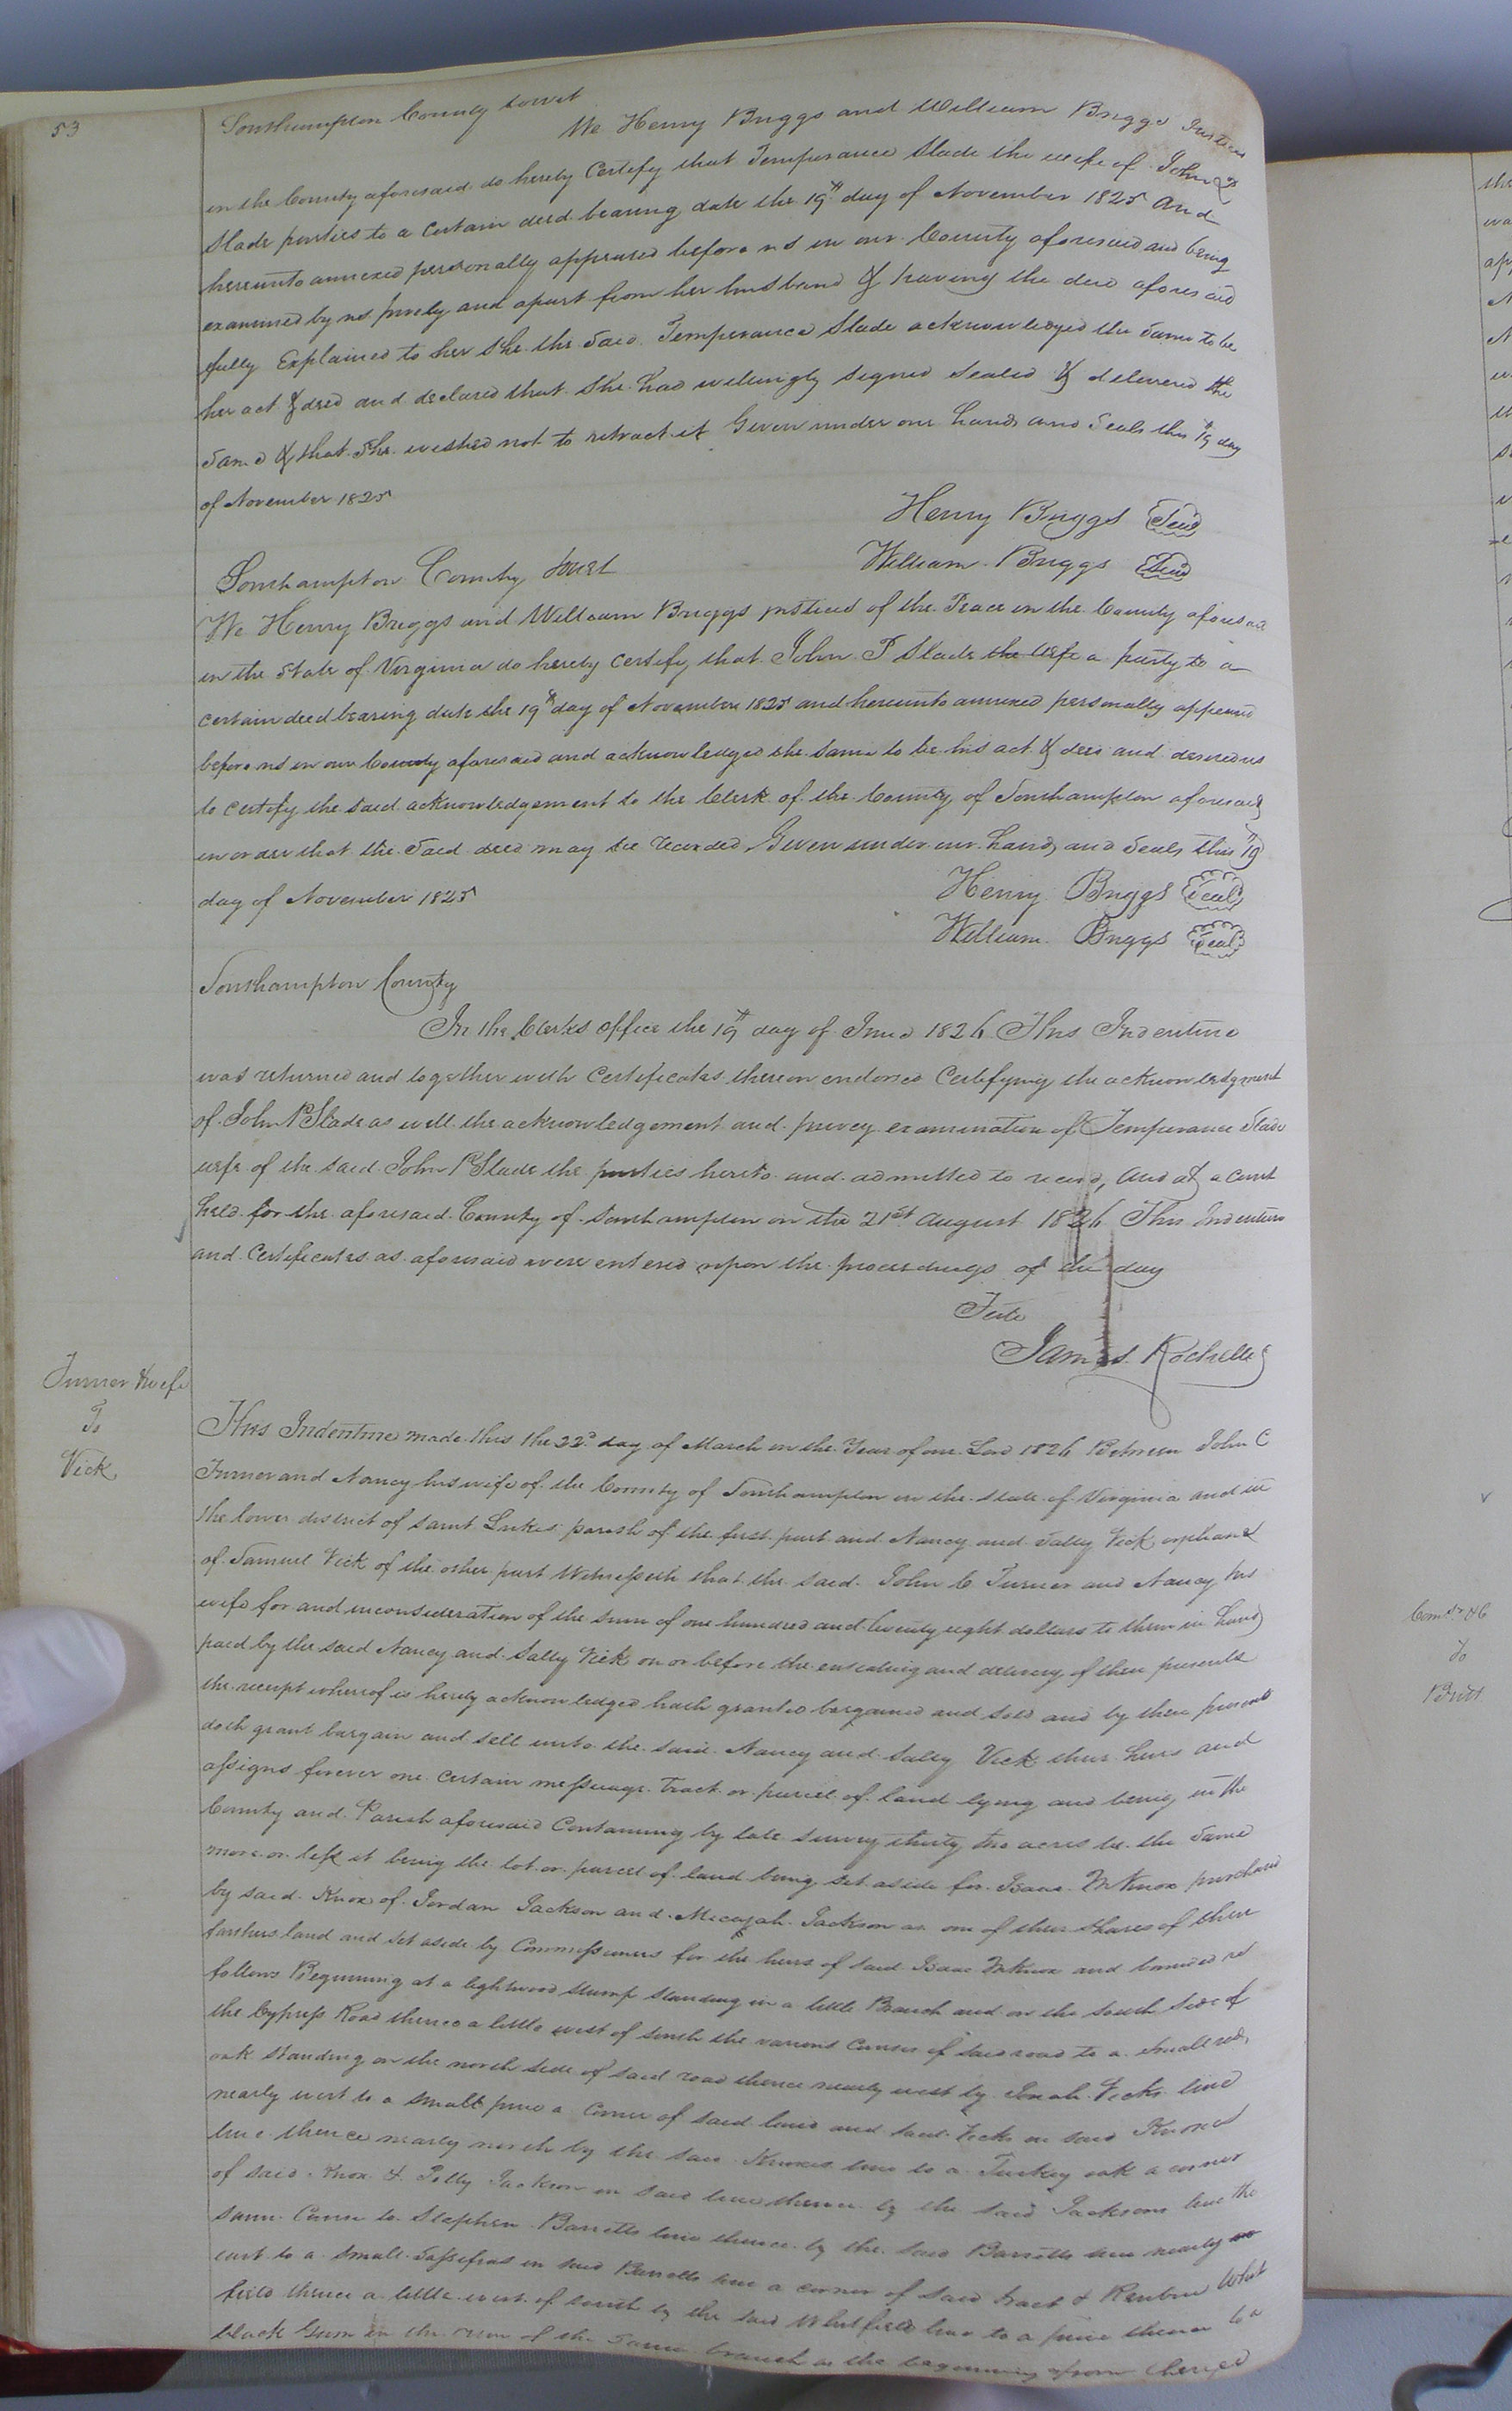 53
Southampton County towit
We Henry Briggs and William Briggs Justices
in the County aforesaid do hereby Certify that Temperance Slade the wife of John P
Slade parties to a Certain deed bearing date the 19th day of November 1825 And
hereunto annexed personally appeared before us in our County aforesaid and being
examined by us privily and apart from her husband & having the deed aforesaid
fully Explained to her she the said Temperance Slade acknowledged the same to be
her act & deed and declared that she had willingly signed sealed & delivered the
same & that she wished not to retract it Given under our hands and seals this 19th day
of November 1825
Henry Briggs Seal
William Briggs Seal
Southampton County towit
We Henry Briggs and William Briggs justices of the Peace in the County aforesaid
in the State of Virginia do hereby certify that John P Slade the wife a party to a
certain deed bearing date the 19th day of November 1825 and hereunto annexed personally appeared
before us in our County aforesaid and acknowledged the same to be his act & deed and desired us
to certify the said acknowledgement to the Clerk of the County of Southampton aforesaid
in order that the said deed may be recorded Given under our hands and seals this 19th
day of November 1825
Henry Briggs Seal
William Briggs Seal
Southampton County
In the Clerks office the 19th day of June 1826 This Indenture
was returned and together with Certificates thereon endorsed Certifying the acknowledgment
of John P Slade as well the acknowledgement and privey examination of Temperance Slade
wife of the said John P Slade the parties hereto and admitted to record, And at a Court
held for the aforesaid County of Southampton on the 21st August 1826 This Indenture
and Certificates as aforesaid were entered upon the proceedings of the day
Teste
James Rochelle
Turner & wife
To
Vick
This Indenture made this the 22d day of March in the Year of our Lord 1826 Between John C
Turner and Nancy his wife of the County of Southampton in the State of Virginia and in
the lower district of Saint Lukes parish of the first part and Nancy and Sally Vick orphans
of Samuel Vick of the other part Witnesseth that the said John C Turner and Nancy his
wife for and inconsideration of the sum of one hundred and twenty eight dollars to them in hand
paid by the said Nancy and Sally Vick on or before the ensealing and delivery of these presents
the receipt whereof is hereby acknowledged hath granted bargained and sold and by these presents
doth grant bargain and sell unto the said Nancy and Sally Vick their heirs and
assigns forever one certain messuage Tract or parcel of land lying and being in the
County and Parish aforesaid Containing by late survey thirty two acres be the same
more or less it being the lot or parcel of land being set aside for Isaac Knox purchased
by said Knox of Jordan Jackson and Micajah Jackson as one of their shares of their
farthers land and set aside by Commissioners for the heirs of said Isaac Knox and bounded as
follows Beginning at a lightwood stump standing in a little Branch and on the south side of
the Cypress Road thence a little west of south the various Courses of said road to a small red
oak standing on the north side of said road thence nearly west by Jonah Vicks line
nearly west to a small pine a Corner of said line and said Vicks on said Knoxes
line thence nearly north by the said Knoxes line to a Turkey oak a corner
of said Knox & Polly Jackson on said line thence by the said Jacksons line the
same Course to Stephen Barretts line thence by the said Barretts line nearly
east to a small Sassafras in said Barretts line a corner of said tract & Reuben Whit
field thence a little west of south by the said Whitfield line to a pine thence to a
black Gum in the run of the same branch as the beginning afrom thence
Comrs &C
To